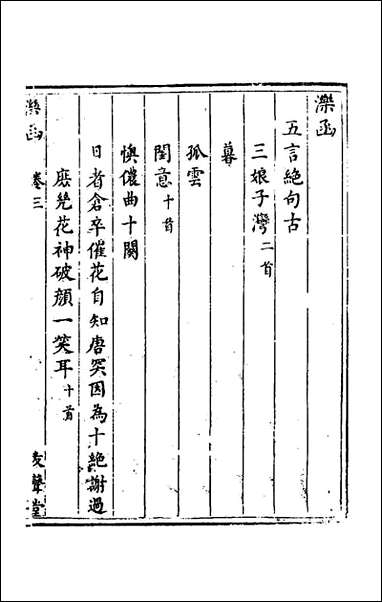 濼函
五言絶句古
三娘子灣二首
暮
孤雲
閨意十首
懊儂曲十闋
日者倉卒催花自知唐突因為十絶謝過
庶㡬花神破顔一笑耳十首
濼函 卷三 友聲堂